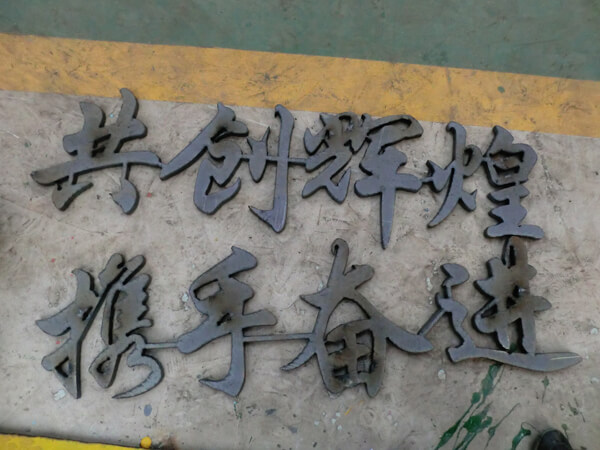 共创辉煌
携手奋进